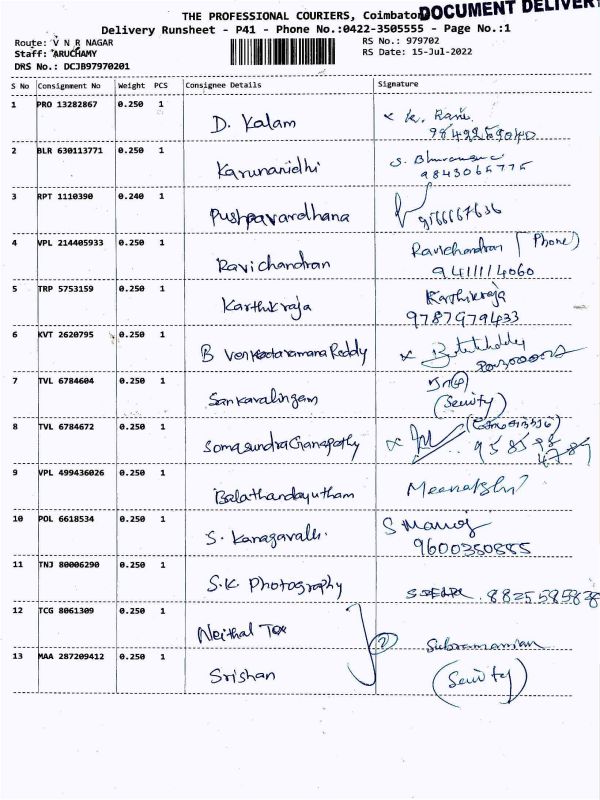 THE PROFESSIONAL COURIERS, Coimbato
DOCUMENT DELIVERY
Delivery Runsheet - P41 - Phone No.:0422-3505555 - Page No.:1
Route: V N R NAGAR
RS No.: 979702
Staff: ARUCHAMY
RS Date: 15-Jul-2022
DRS No.: DCJB97970201
S No Consignment No Weight PCS Consignee Details Signature
1 PRO 13282867 0.250 1 D. Kalam
2 BLR 630113771 0.250 1 Karunanidhi
9843065775
3 RPT 1110390 0.240 1 Pushpavardhana
4 VPL 214405933 0.250 1 Ravichandran Ravichandran (Phone)
5 TRP 5753159 0.250 1 Karthikraja Karthikraja
9787979433
6 KVT 2620795 0.250 1 B Venkataramana Reddy
7 TVL 6784604 0.250 1 Sankaralingam
(Security)
8 TVL 6784672 0.250 1 Somasundra Ganapathy
9 VPL 499436026 0.250 1 Balathandayutham Meenakshi
10 POL 6618534 0.250 1 S. Kanagavalli. S Manoj
9600350885
11 TNJ 80006290 0.250 1 S.K Photography
12 TCG 8061309 0.250 1 Neithal Tex 2 Subramanian
13 MAA 287209412 0.250 1 Srishan (Security)